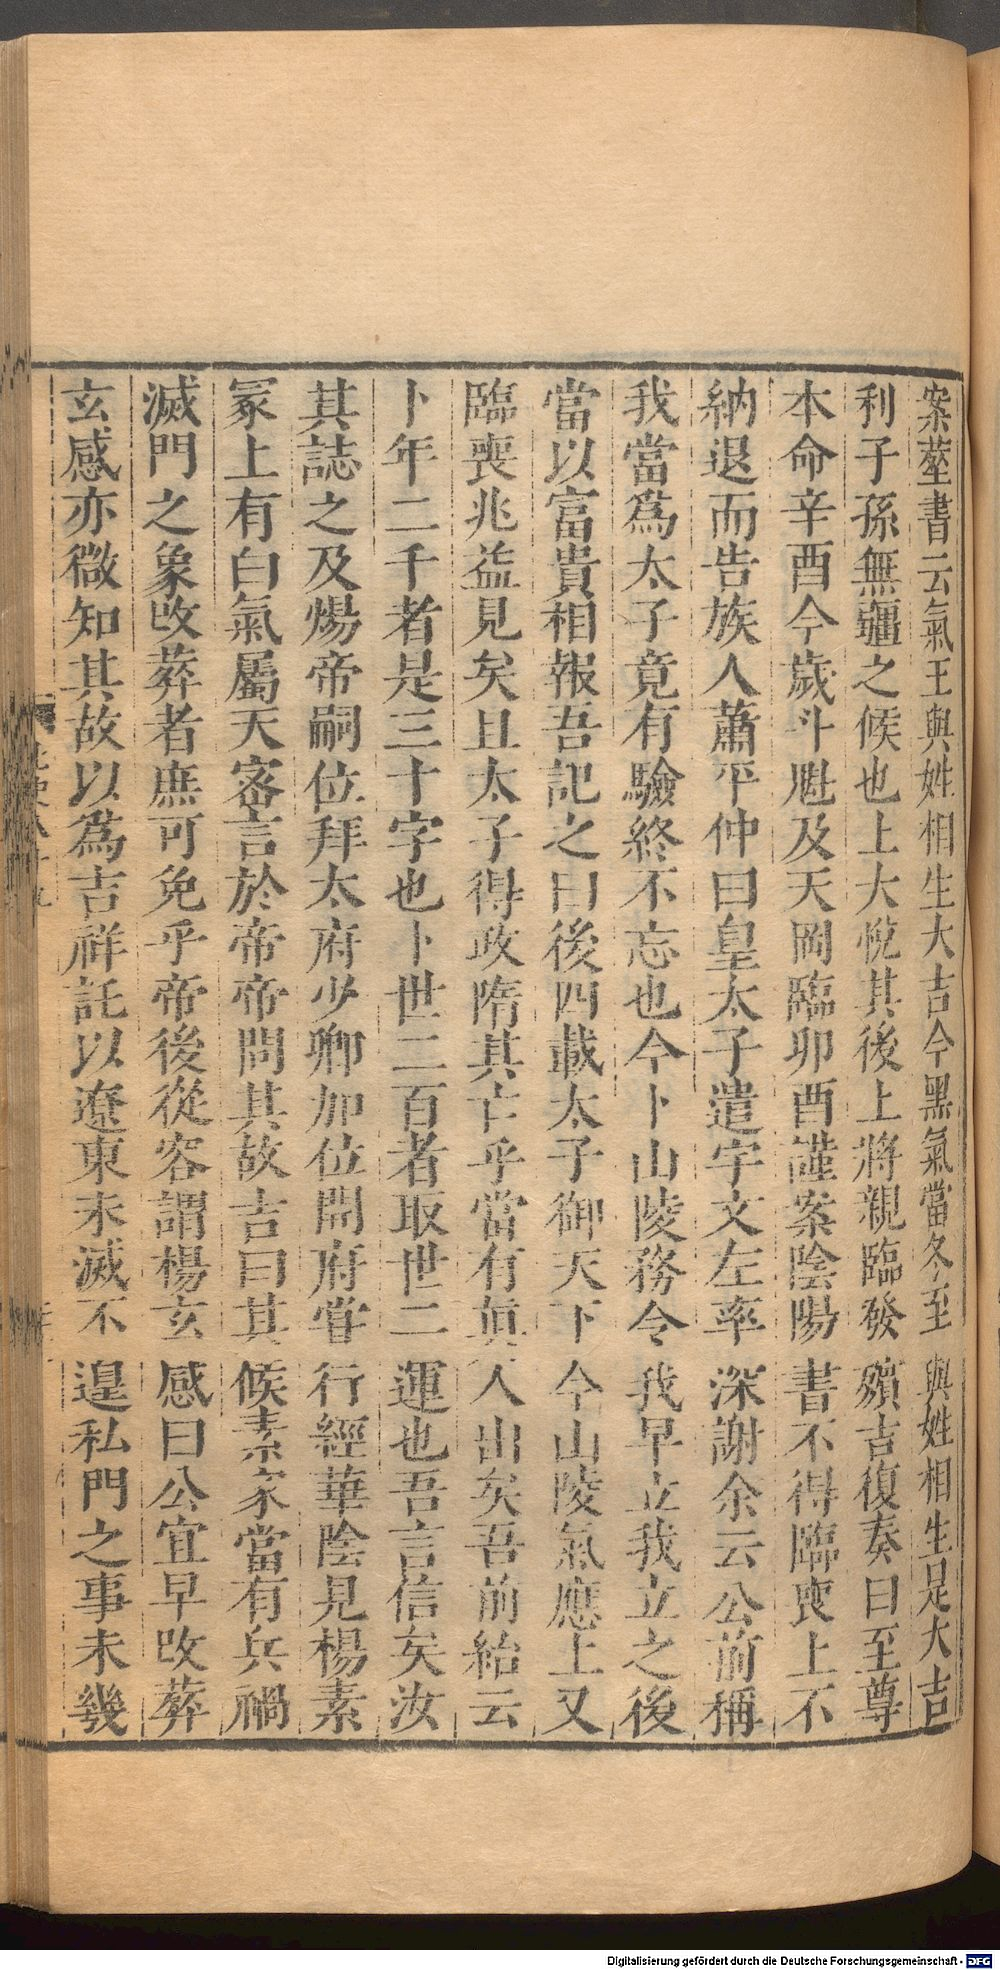 案葬書云氣王與姓相生大吉今黑氣當冬至與姓相生是大吉
利子孫無疆之候也上大悅其後上將親臨發殯吉復奏曰至尊
本命辛酉今歲斗魁及天岡臨卯酉謹案陰陽書不得臨喪上不
納退而告族人蕭平仲曰皇太子遣宇文左率深謝余云公前稱
我當爲太子竟有驗終不忘也今卜山陵務令我早立我立之後
當以富貴相報吾記之曰後四載太子御天下今山陵氣應上又
臨喪兆益見矣且太子得政隋其亡乎當有眞人出矣吾前紿云
卜年二千者是三十字也卜世二百者取世二運也吾言信矣汝
其誌之及煬帝嗣位拜太府少卿加位開府嘗行經華陰見楊素
冢上有白氣屬天密言於帝帝問其故吉曰其候素家當有兵禍
滅門之象改葬者庶可免乎帝後從容謂楊玄感曰公宜早改葬
玄感亦微知其故以爲吉祥託以遼東未滅不遑私門之事未幾
Digitalisierung gefördert durch die Deutsche Forschungsgemeinschaft - DFG